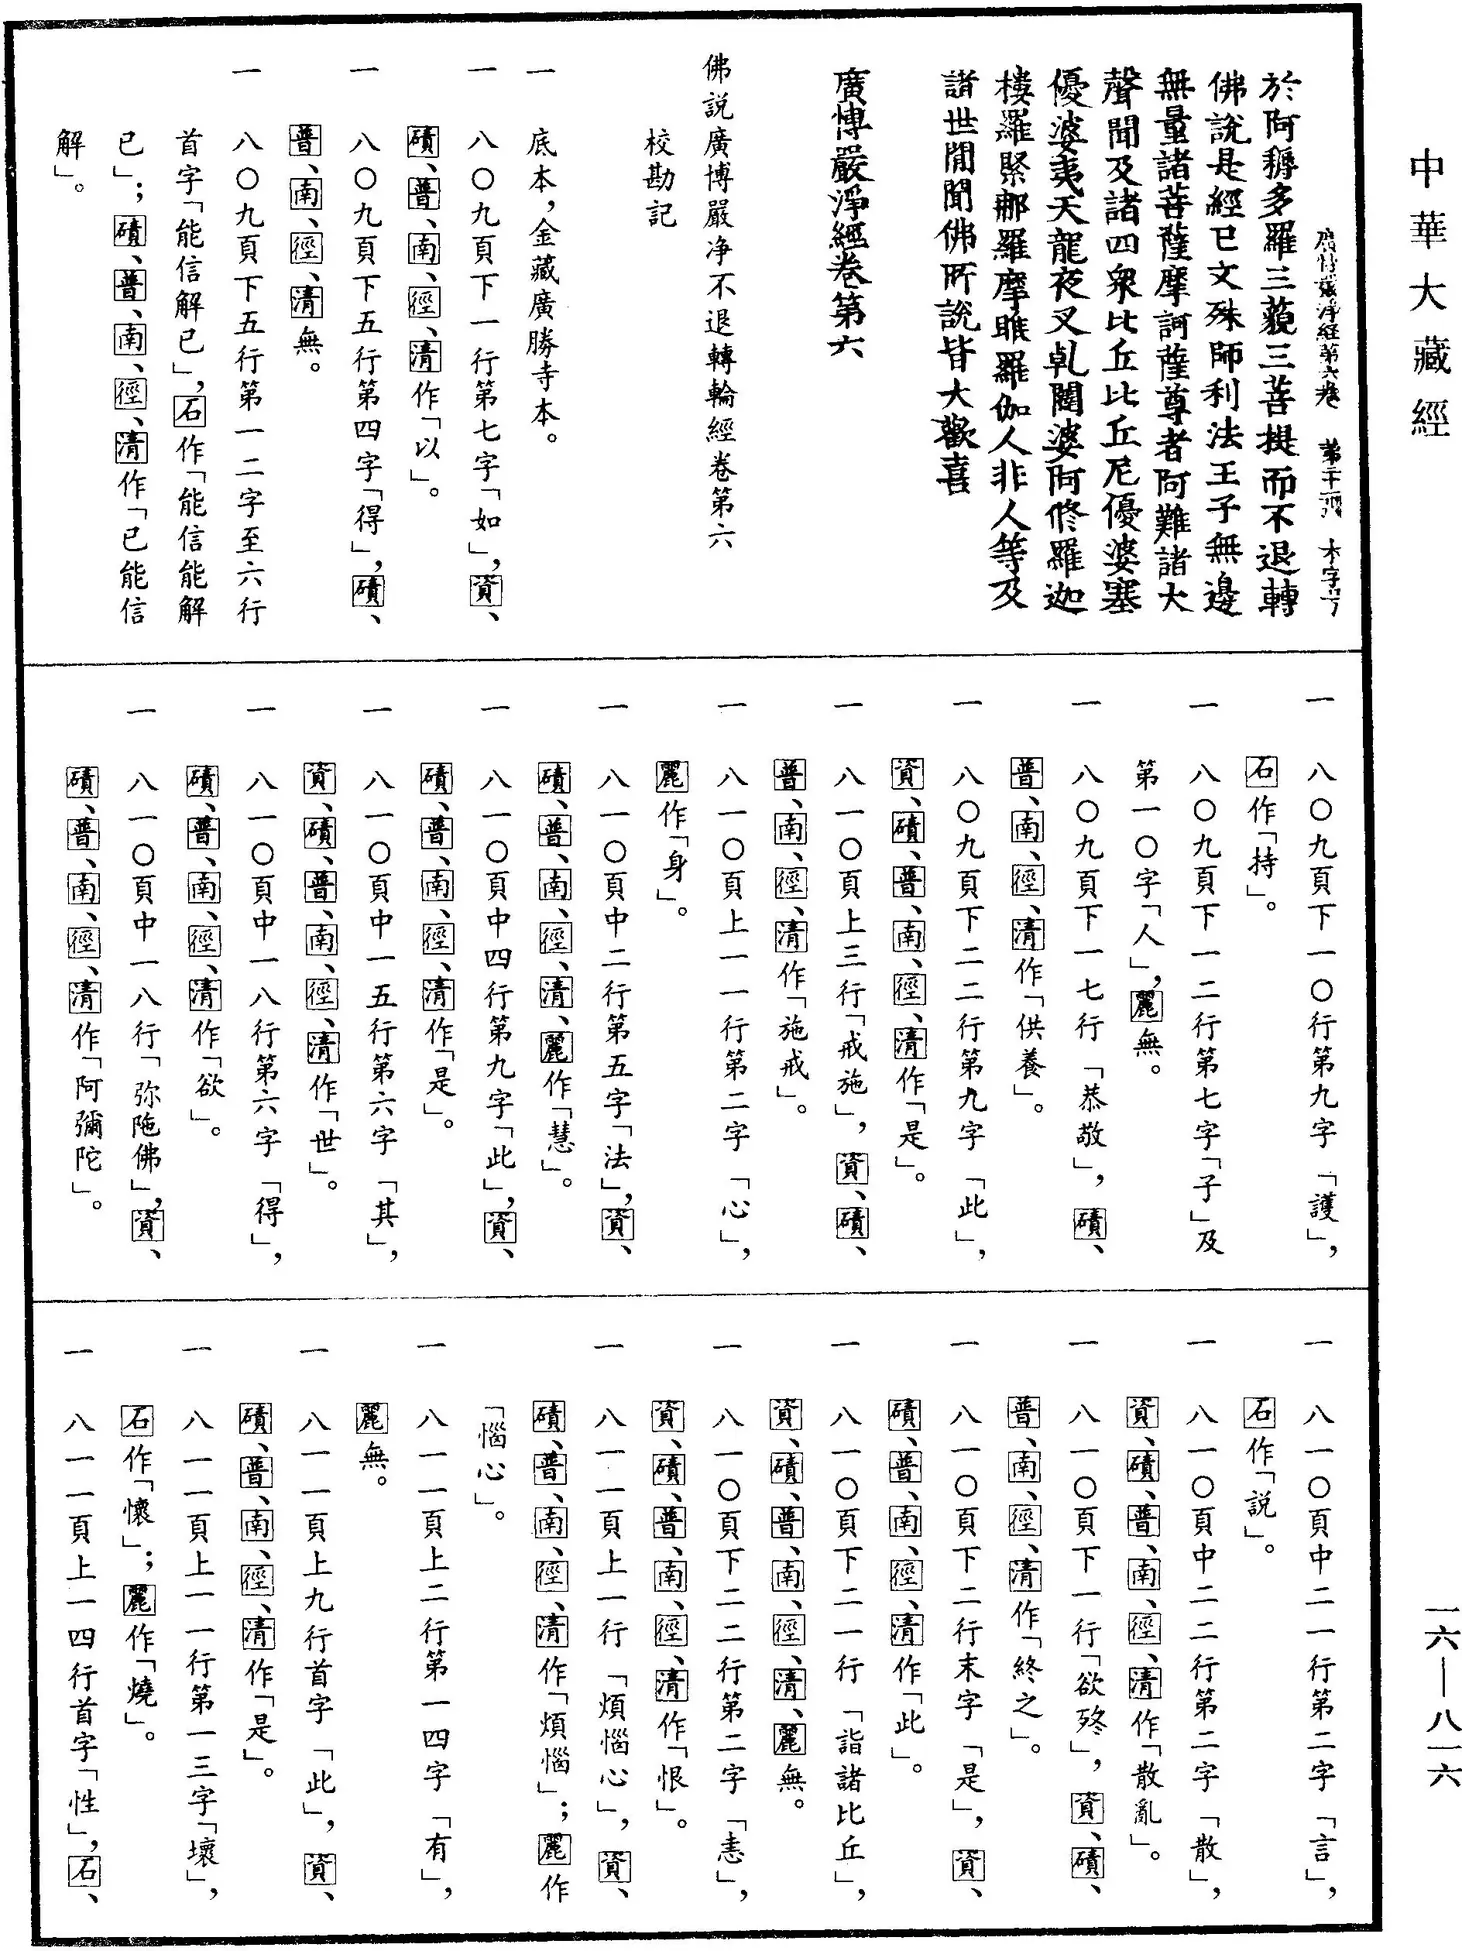 中華大藏經
於阿耨多羅三藐三菩提而不退轉
佛說是經已文殊師利法王子無邊
無量諸菩薩摩訶薩尊者阿難諸大
聲聞及諸四衆比丘比丘尼優婆塞
優婆夷天龍夜叉乹闥婆阿修羅迦
樓羅緊那羅摩睺羅伽人非人等及
諸世間聞佛所說皆大歡喜
廣博嚴淨經卷第六
佛説廣博嚴净不退轉輪經卷第六
校勘記
一 底本，金藏廣勝寺本。
一 八〇九頁下一行第七字「如」，資、
磧、普、南、徑、清作「以」。
一 八〇九頁下五行第四字「得」，磧、
普、南、徑、清無。
一 八〇九頁下五行第一二字至六行
首字「能信解已」，石作「能信能解
已」；磧、普、南、徑、清作「已能信
解」。
一 八〇九頁下一〇行第九字「護」，
石作「持」。
一 八〇九頁下一二行第七字「子」及
第一〇字「人」，麗無。
一 八〇九頁下一七行「恭敬」，磧、
普、南、徑、清作「供養」。
一 八〇九頁下二二行第九字「此」，
資、磧、普、南、徑、清作「是」。
一 八一〇頁上三行「戒施」，資、磧、
普、南、徑、清作「施戒」。
一 八一〇頁上一一行第二字「心」，
麗作「身」。
一 八一〇頁中二行第五字「法」，資、
磧、普、南、徑、清、麗作「慧」。
一 八一〇頁中四行第九字「此」，資、
磧、普、南、徑、清作「是」。
一 八一〇頁中一五行第六字「其」，
資、磧、普、南、徑、清作「世」。
一 八一〇頁中一八行第六字「得」，
磧、普、南、徑、清作「欲」。
一 八一〇頁中一八行「弥陁佛」，資、
磧、普、南、徑、清作「阿彌陀」。
一 八一〇頁中二一行第二字「言」，
石作「説」。
一 八一〇頁中二二行第二字「散」，
資、磧、普、南、徑、清作「散亂」。
一 八一〇頁下一行「欲殁」，資、磧、
普、南、徑、清作「終之」。
一 八一〇頁下二行末字「是」，資、
磧、普、南、徑、清作「此」。
一 八一〇頁下二一行「詣諸比丘」，
資、磧、普、南、徑、清、麗無。
一 八一〇頁下二二行第二字「恚」，
資、磧、普、南、徑、清作「恨」。
一 八一一頁上一行「煩惱心」，資、
磧、普、南、徑、清作「煩惱」；麗作
「惱心」。
一 八一一頁上二行第一四字「有」，
麗無。
一 八一一頁上九行首字「此」，資、
磧、普、南、徑、清作「是」。
一 八一一頁上一一行第一三字「壞」，
石作「懷」；麗作「燒」。
一 八一一頁上一四行首字「性」，石、
一六—八一六